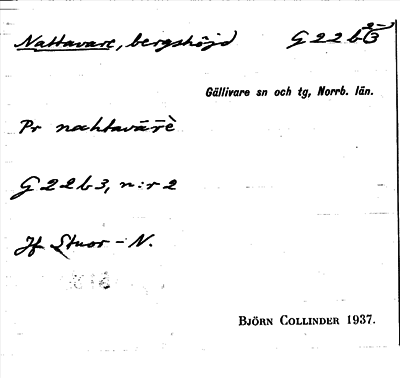 Nattavare, bergshöjd G 22 b 3
Gällivare sn och tg, Norrb. län.
Pr nahtavārḕ
G 22 b 3, n:r 2
Jf Stuor-N.
BJÖRN COLLINDER 1937.